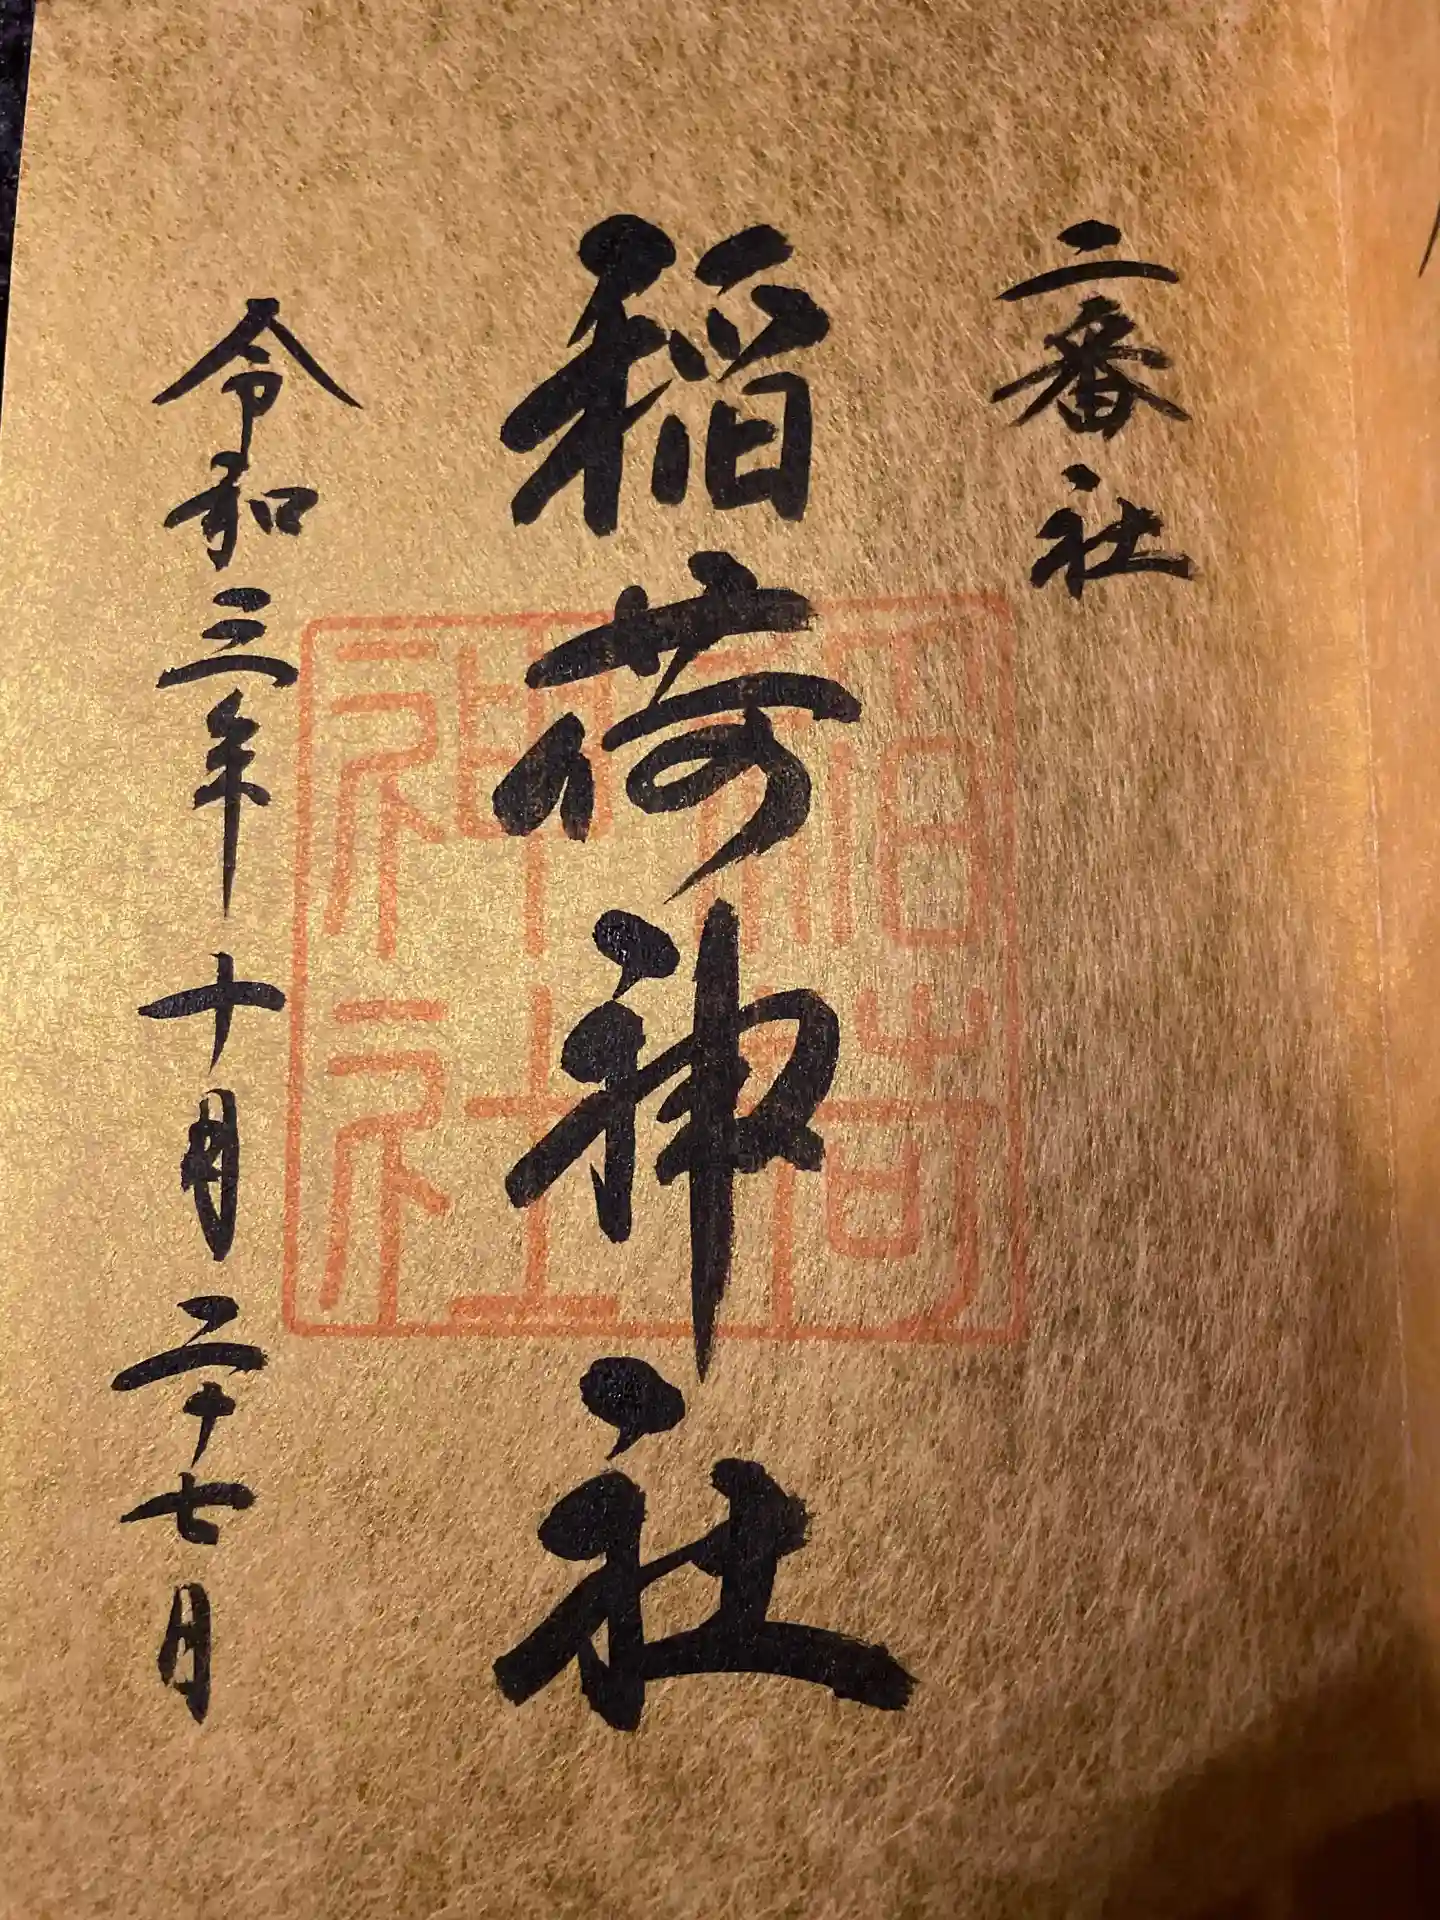 二番社
稲荷神社
稲荷神社
令和三年十月二十七日